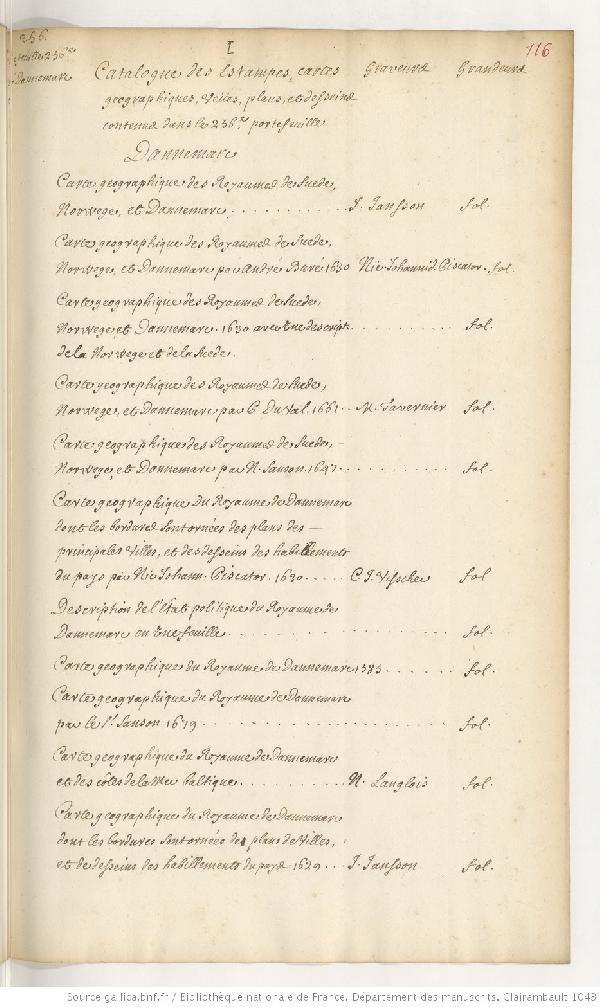 256.
I
116
portefeuille 256.me
Dannemarc
Catalogue des Estampes, cartes Graveurs Grandeurs
geographiques, Veües, plans, et desseins
contenus dans le 256.me portefeuille
Dannemarc
Carte geographique des Royaumes de Suede,
Norwege, et Dannemarc . . . . . . . . . . J. Jansson fol.
Carte geographique des Royaumes de Suede,
Norwege, et Dannemarc par André Buré 1630 Nic Johannid. Piscator. fol.
Carte geographique des Royaumes de Suede,
Norwege, et Dannemarc. 1630 avec Une descript. . . . . . . . . . fol.
de la Norwege et de la Suede.
Carte geographique des Royaumes de Suede,
Norwege, et Dannemarc par P. Du Val. 1661. . M. Tavernier fol.
Carte geographique des Royaumes de Suede, –
Norwege, et Dannemarc par N. Sanson. 1647. . . . . . . . . . . fol.
Carte geographique Du Royaume de Dannemarc
dont les bordures sont ornées des plans des —
principales Villes, et des desseins des habillements
du pays par Nic Johann. Piscator. 1630 . . . . . C. J. Visscher fol
Description de l'Etat politique du Royaume de
Dannemarc en Une feuille . . . . . . . . . . . . . . . . . . . fol.
Carte geographique du Royaume de Dannemarc 1585 . . . . . . . fol.
Carte geographique du Royaume de Dannemarc
par le S.r Sanson 1659 . . . . . . . . . . . . . . . . . . . . fol.
Carte geographique du Royaume de Dannemarc
et des côtes de la Mer baltique . . . . . . . . . . N. Langlois fol.
Carte geographique du Royaume de Dannemarc
dont les bordures sont ornées de plans de Villes,
et de desseins des habillements du pays 1629 . . . J. Jansson fol.
Source gallica.bnf.fr / Bibliothèque nationale de France. Département des manuscrits. Clairambault 1043